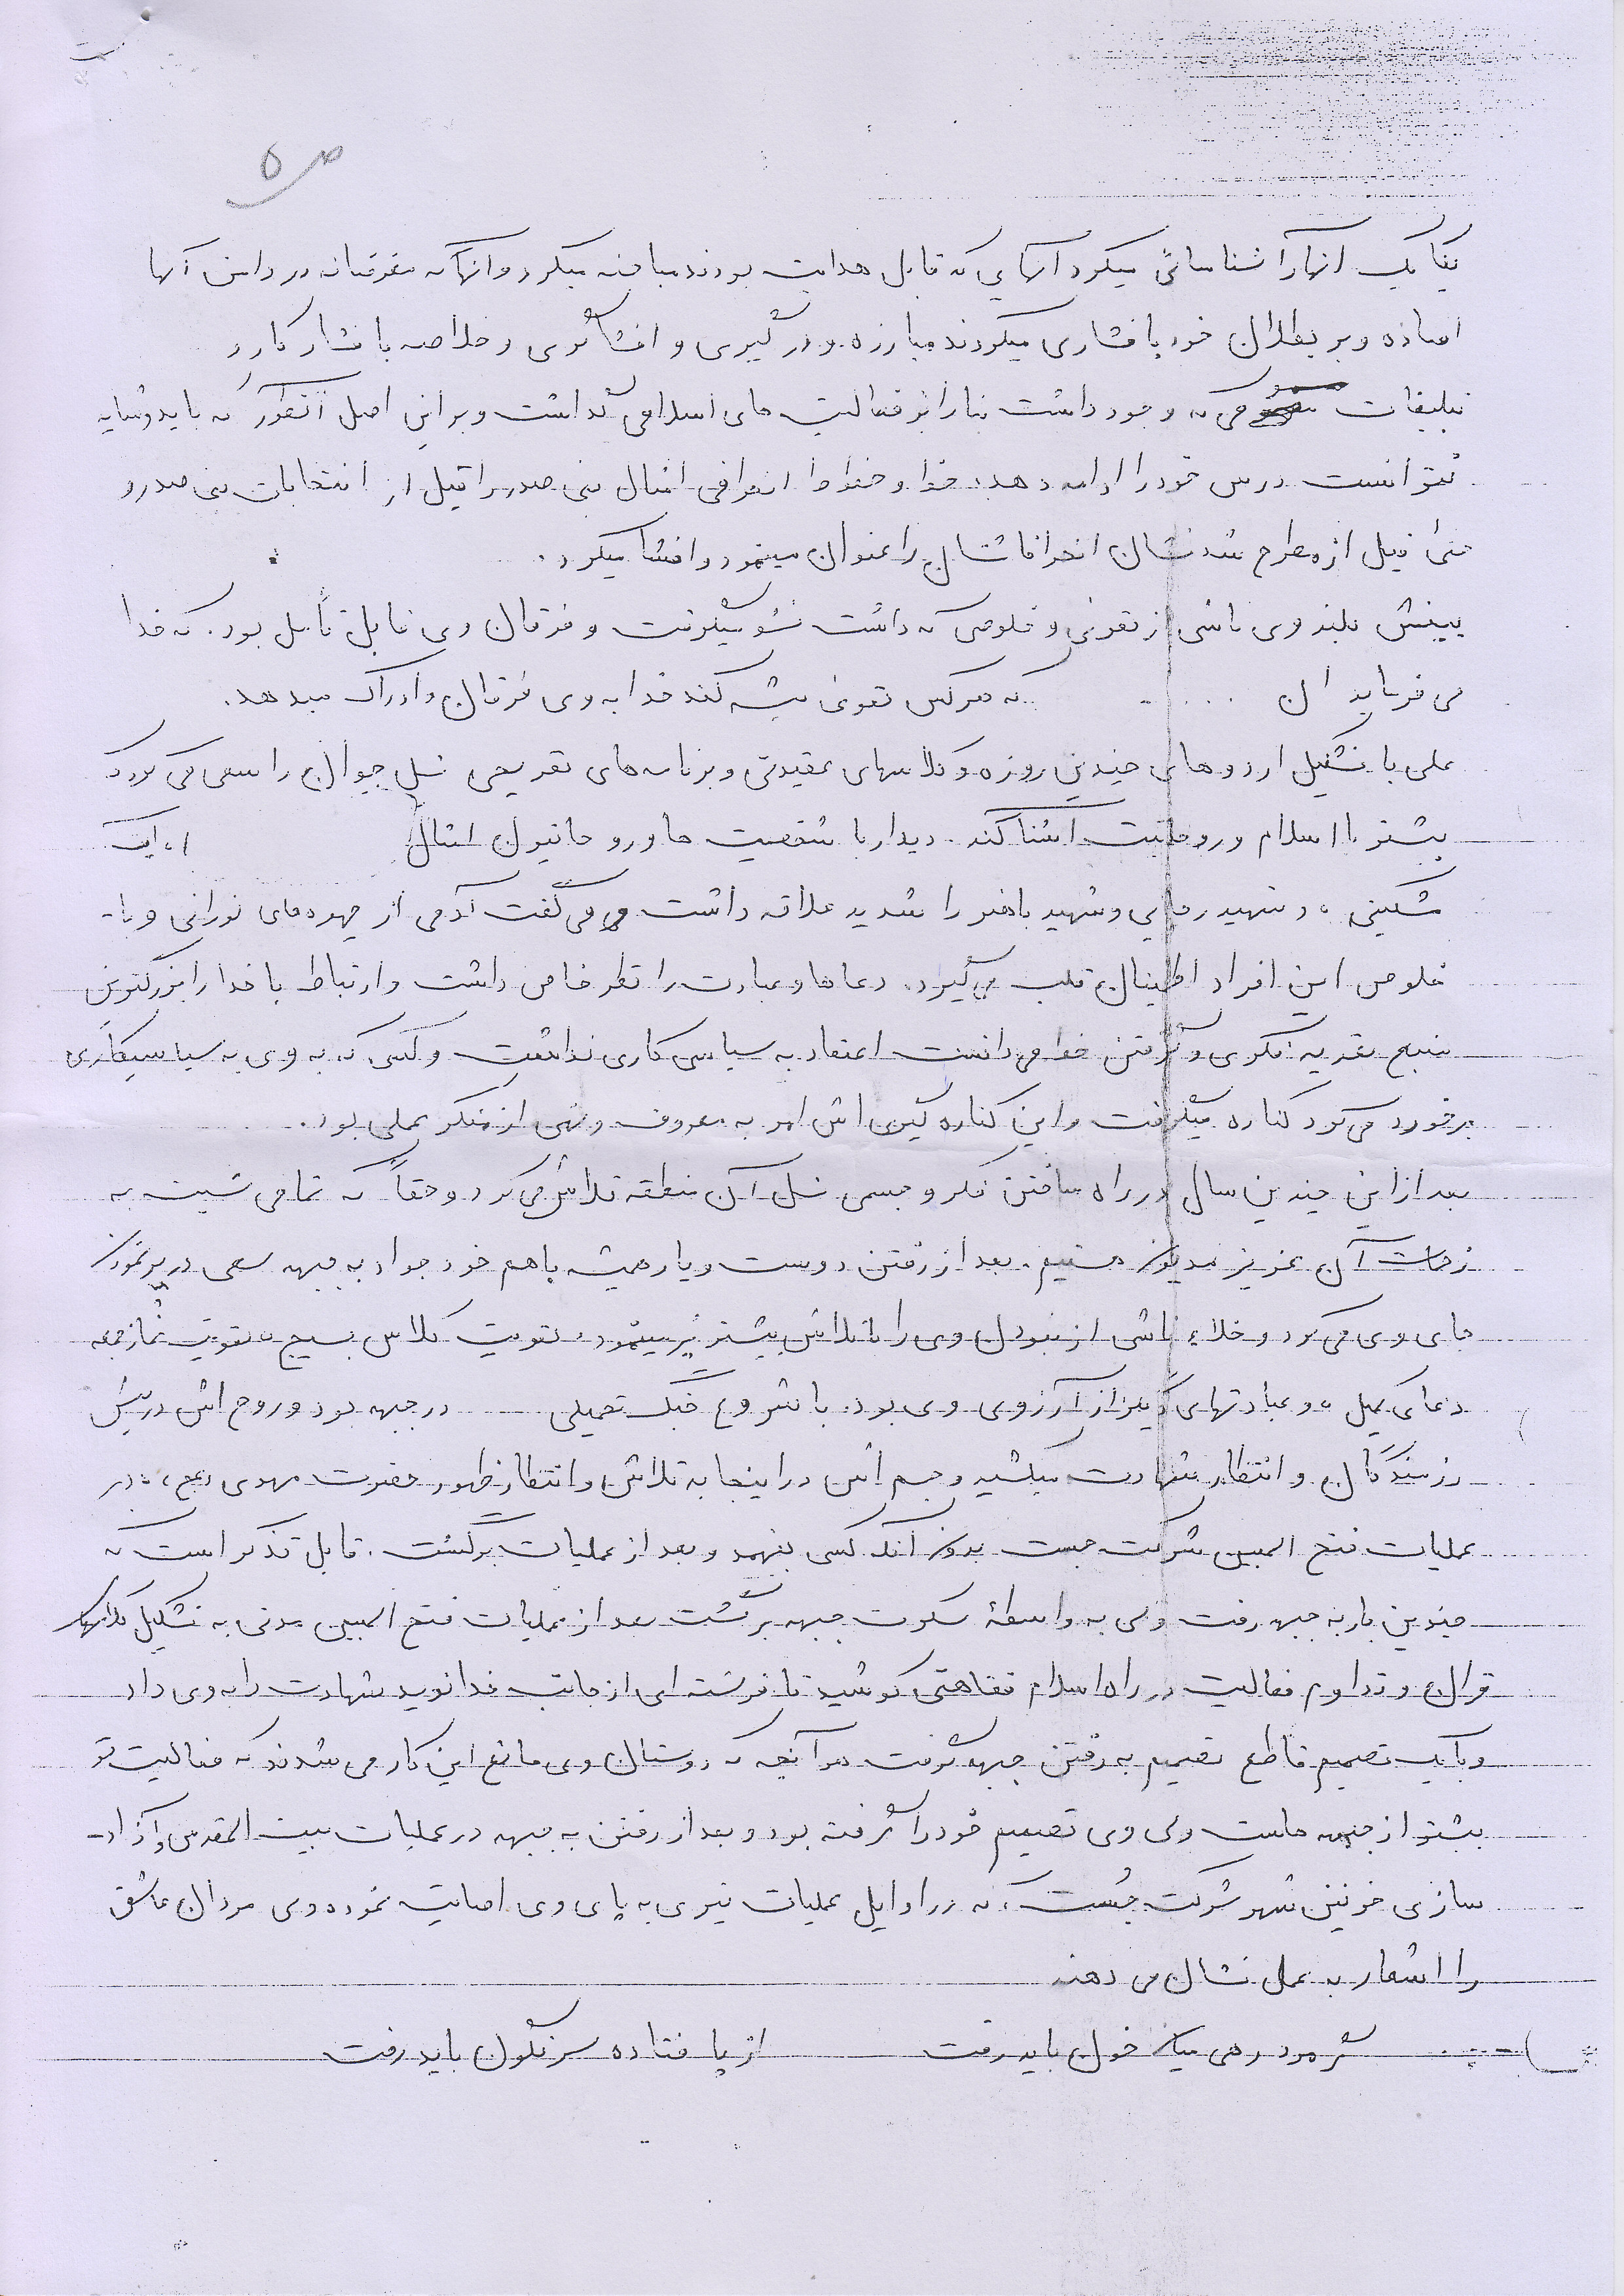 ص ۵
یکایک آنها را شناسائی میکرد آنهایی که قابل هدایت بودند مباحثه میکرد و آنها که مغرضانه در دامن آنها
افتاده و بر بطلان خود پافشاری میکردند مبارزه و درگیری و افشاگری و خلاصه با فشار کار و
تبلیغات که وجود داشت بنا را بر فعالیت های اسلامی گذاشت و بر این اصل آنطور که باید و شاید
نتوانست درس خود را ادامه دهد. خط و خطوط انحرافی امثال بنی صدر را قبل از انتخابات بنی صدر و
حتی قبل از مطرح شدنشان انحرافاتشان را عنوان مینمود و افشا میکرد.
بینش بلند وی ناشی از تقوی و خلوصی که داشت نشو میگرفت و فرقان وی قابل تأمل بود. که خدا
می فرماید ان ..... که هرکس تقوی پیشه کند خدا به وی فرقان و ادراک میدهد.
علی با تشکیل اردوهای چندین روزه و کلاسهای عقیدتی و برنامه های تفریحی نسل جوان را سعی می کرد که
بیشتر با اسلام و روحانیت آشنا کند. دیدار با شخصیت ها و روحانیون امثال
مشکینی، و شهید رجایی و شهید باهنر را شدید علاقه داشت و می گفت آدمی از چهره های نورانی و با-
خلوص این افراد اطمینان قلب می گیرد. دعاها و عبادت را نظر خاص داشت و ارتباط با خدا را بزرگترین
منبع تغذیه فکری و گرفتن خط می دانست اعتقاد به سیاسی کاری نداشت و کسی که به وی به سیاسیکاری
برخورد می کرد کناره میگرفت و این کناره گیری اش امر به معروف و نهی از منکر عملی بود.
بعد از این چندین سال در راه ساختن فکر و جسمی نسل آن منطقه تلاش می کرد و حقاً که تمامی نسبت به
زحمات آن عزیز مدیون هستیم. بعد از رفتن دوست و یار همیشه باهم خود جواد به جبهه سعی در پر نمودن
جای وی می کرد و خلاء ناشی از نبودن وی را با تلاش بیشتر پر مینمود. تقویت کلاس بسیج، تقویت نماز جمعه
دعای کمیل، و عبادتهای دیگر از آرزوی وی بود. با شروع جنگ تحمیلی در جبهه بود و روح اش در پیش
رزمندگان و انتظار شهادت میکشید و جسم اش در اینجا به تلاش و انتظار ظهور حضرت مهدی (عج)، در
عملیات فتح المبین شرکت جست بدون آنکه کسی بفهمد و بعد از عملیات برگشت. قابل تذکر است که
چندین بار به جبهه رفت ولی به واسطهٔ سکوت جبهه برگشت بعد از عملیات فتح المبین مدتی به تشکیل کلاسهای
قرآن و تداوم فعالیت در راه اسلام فقاهتی کوشید تا فرشته ای از جانب خدا نوید شهادت را به وی داد
و با یک تصمیم قاطع تصمیم به رفتن جبهه گرفت هرآنچه که دوستان وی مانع این کار می شدند که فعالیت تو
بیشتر از جبهه هاست ولی وی تصمیم خود را گرفته بود و بعد از رفتن به جبهه در عملیات بیت المقدس و آزاد-
سازی خونین شهر شرکت جُست، که در اوایل عملیات تیری به پای وی اصابت نموده وی مردان عاشق
را اشعار به عمل نشان می دهند
گر مرد رهی میان خون باید رفت از پا فتاده سرنگون باید رفت